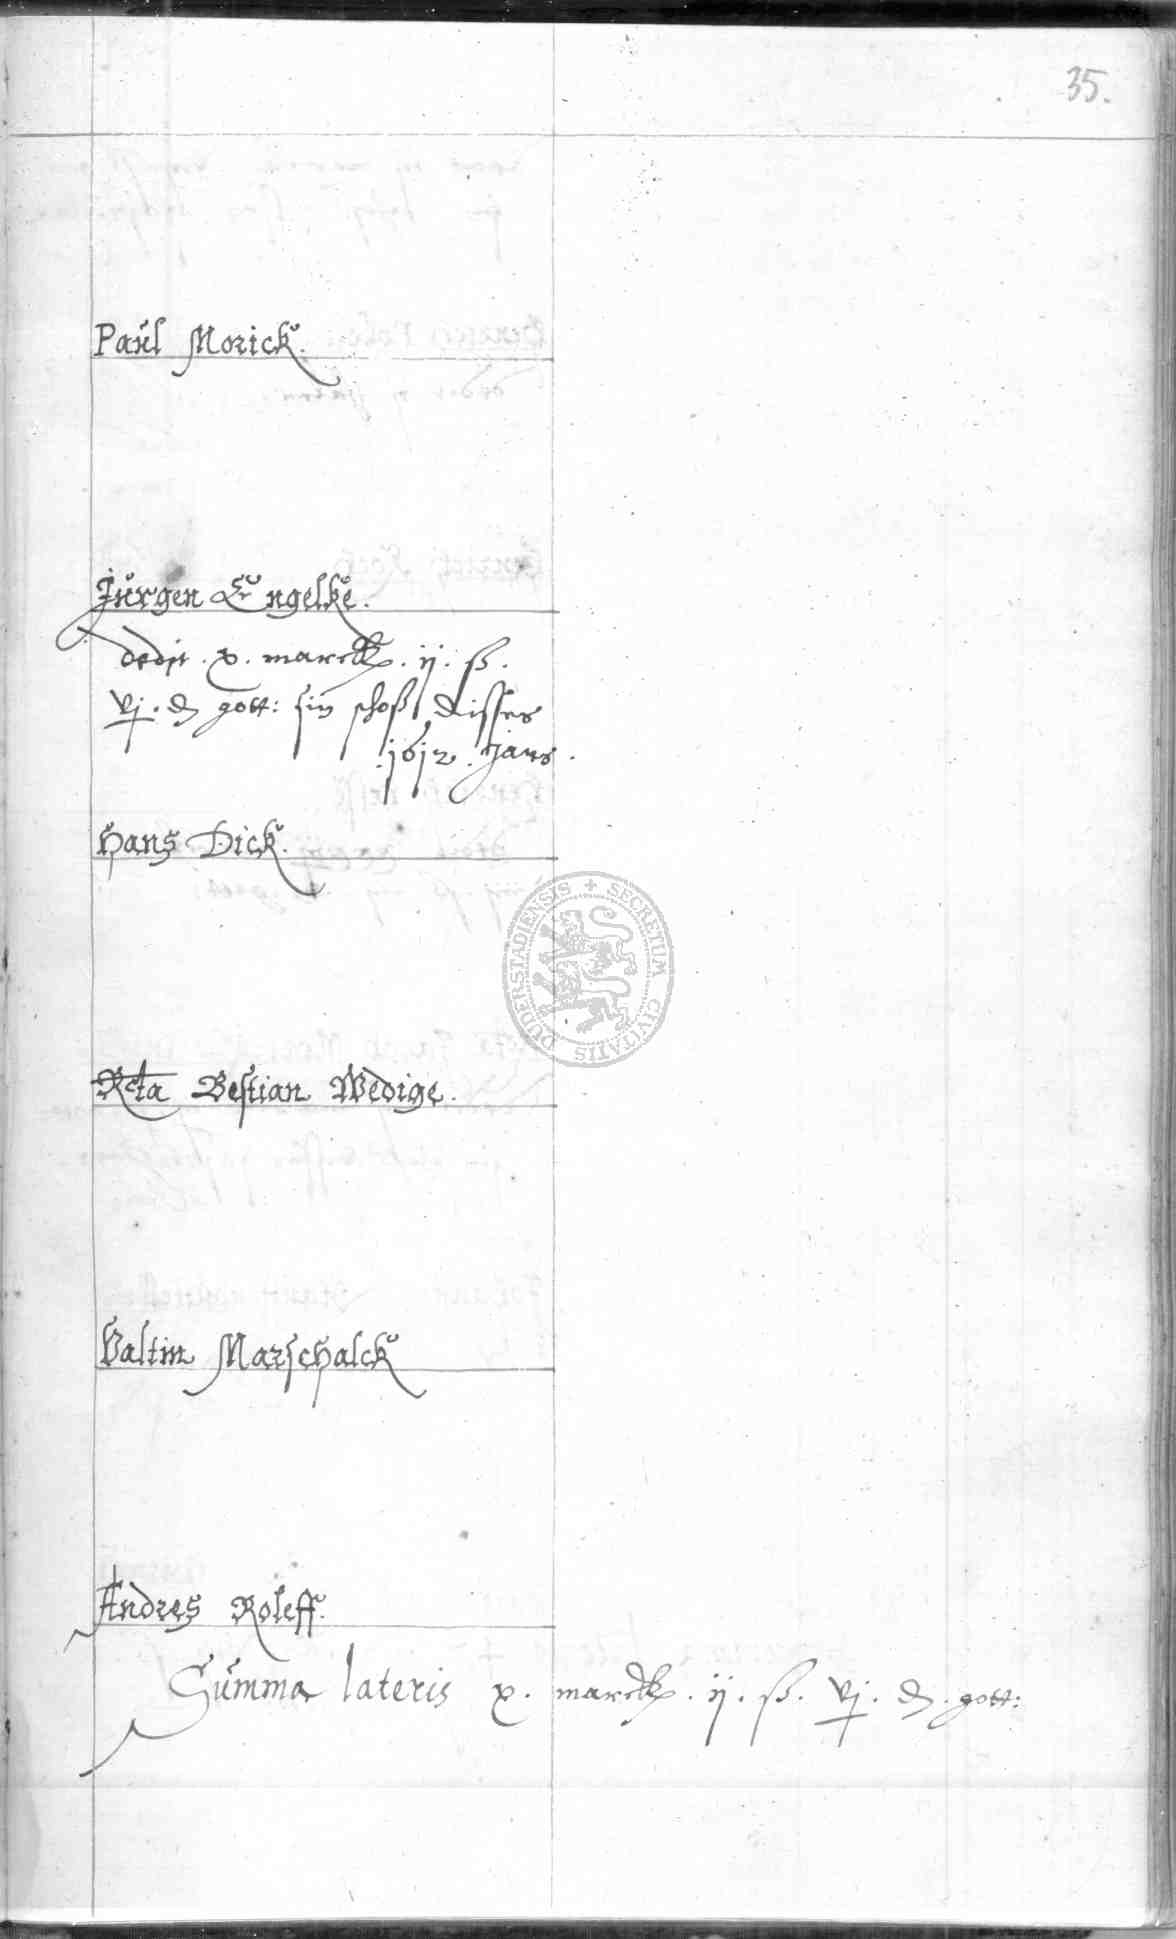 35.
Paul Morick.
Jurgen Engelke.
dedit . x . marck . ij . ß .
vj . ₰ gott: sin schoß disses
. 1612 . Jars .
Hans Dick.
Rcta Bestian Wedige.
Valtin Marschalck
Andres Roleff.
Summa lateris x . marck . ij . ß . vj . ₰ . gott:
SECRETUM CIVITATIS DUDERSTADIENSIS